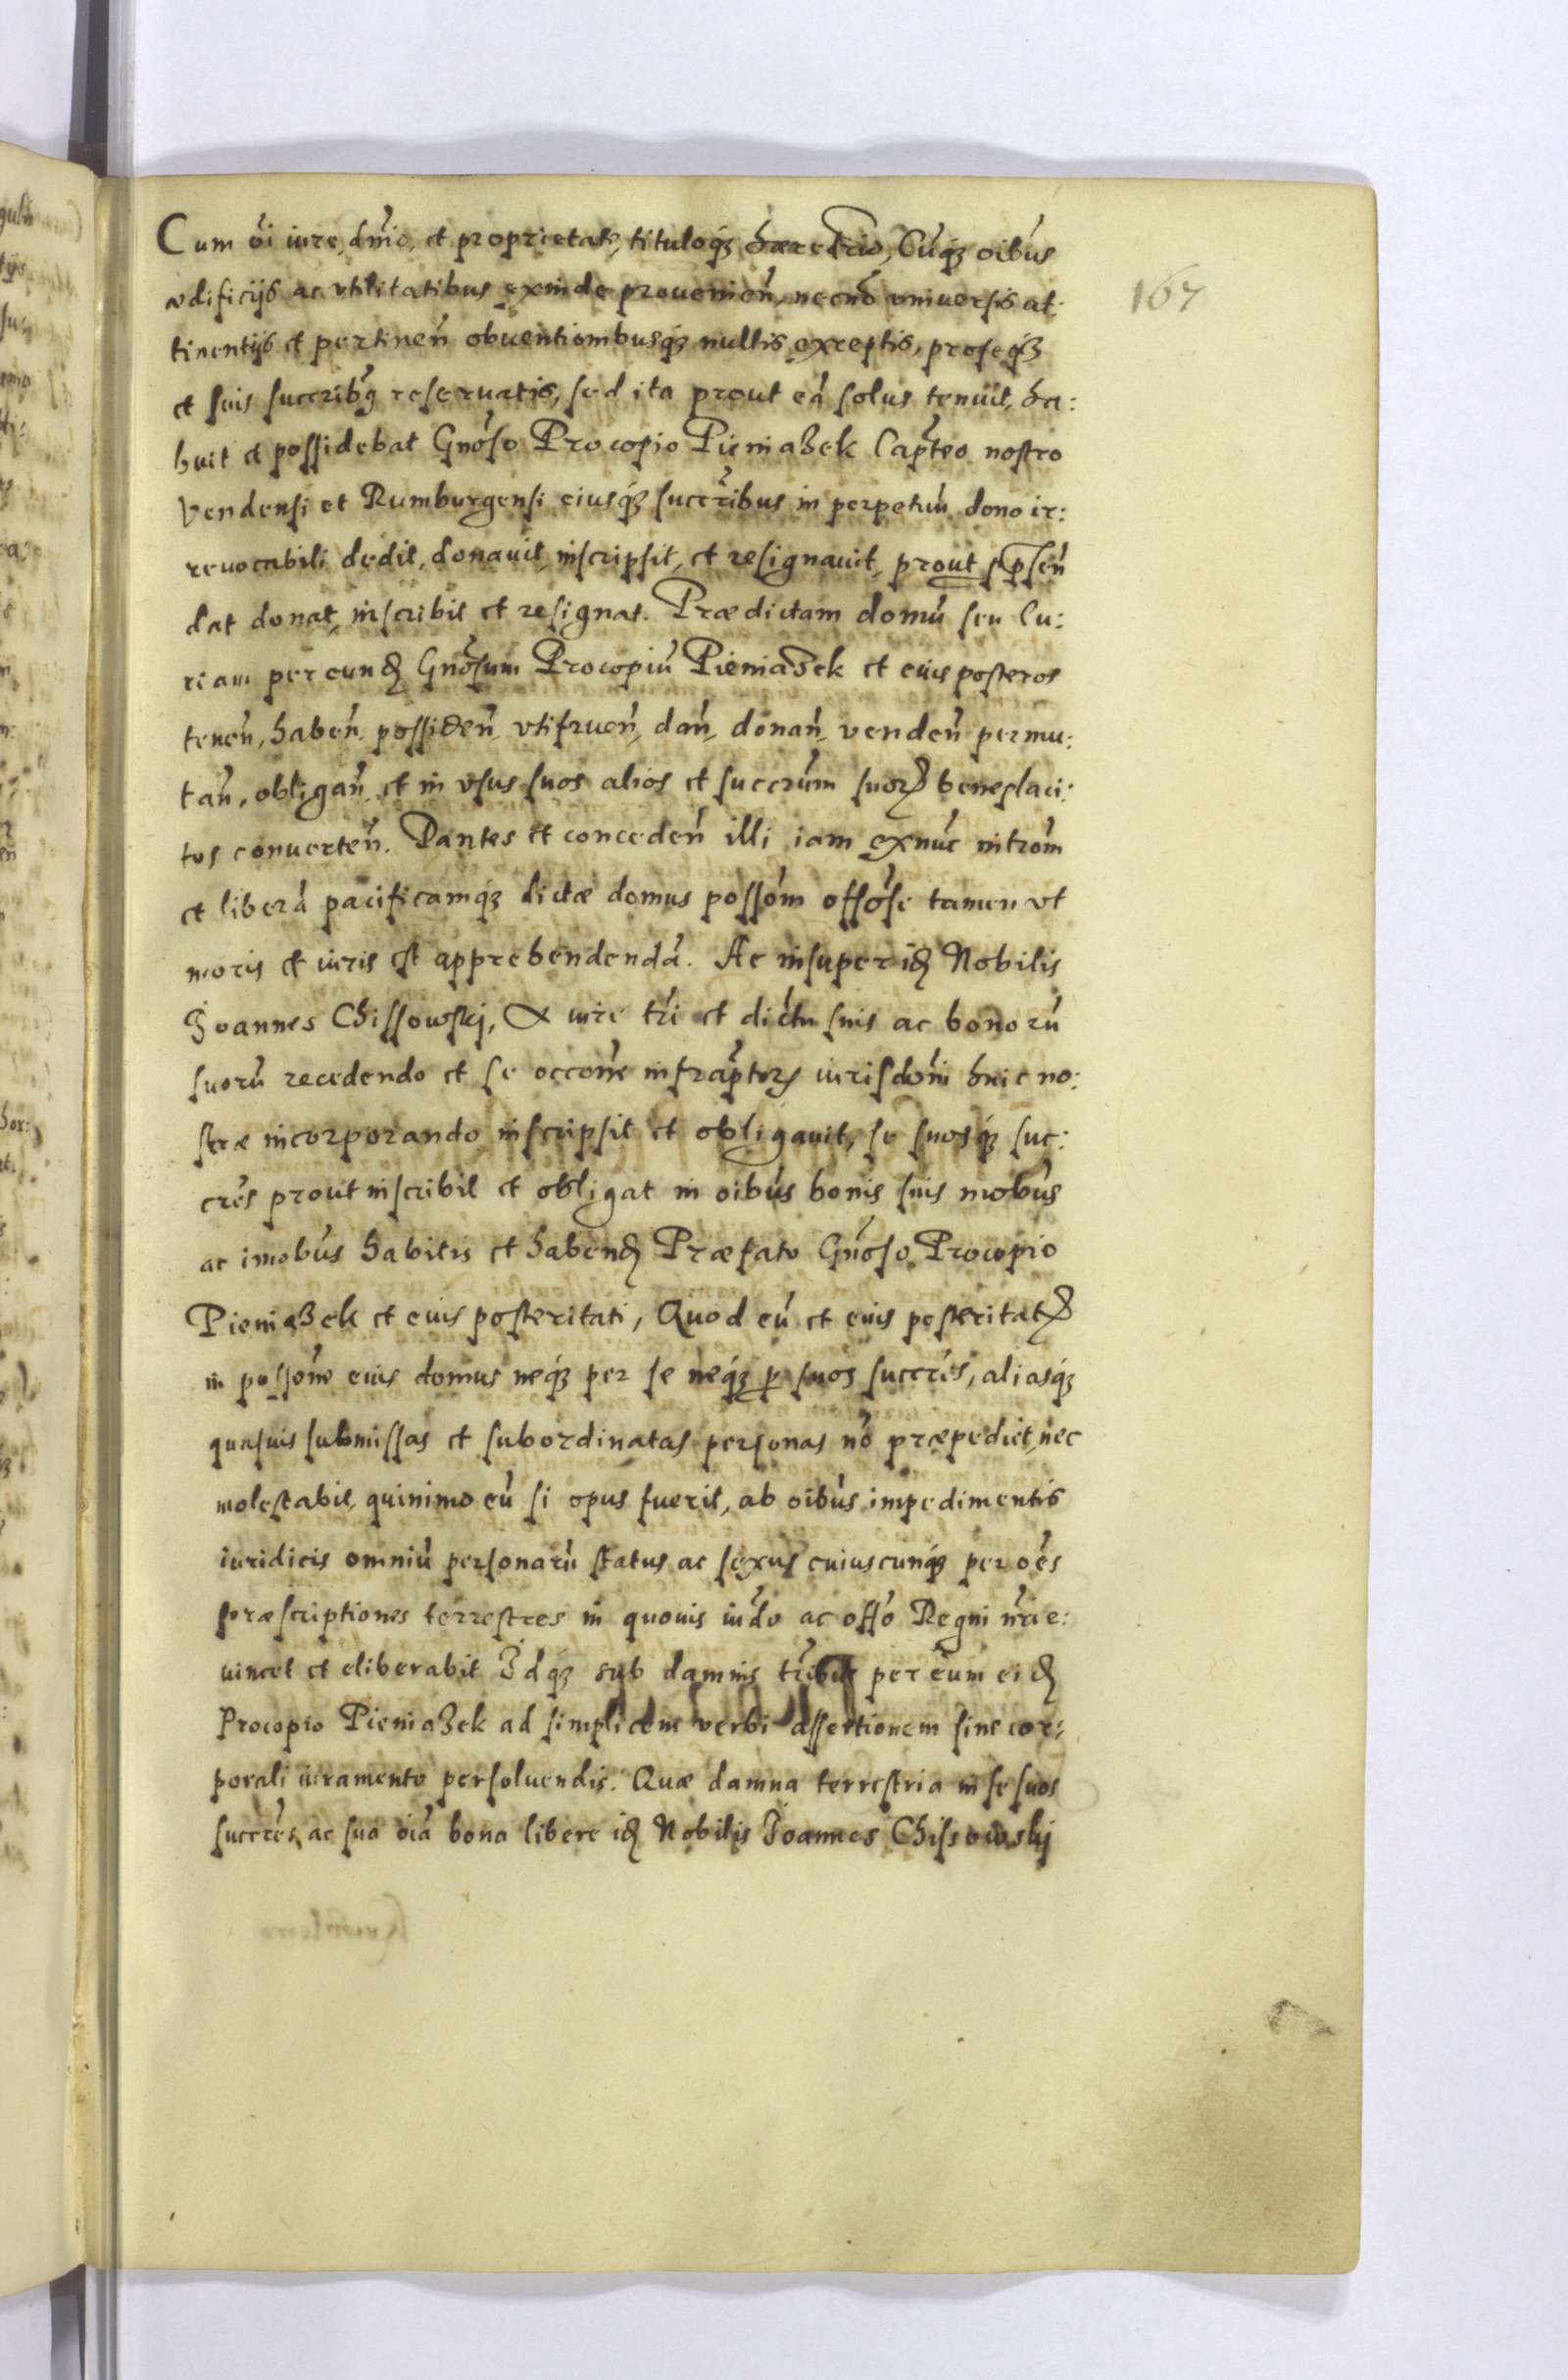 Cum oi iure, dnio, et proprietate, tituloq₃ haeredrio, Cuq₃ oibus
167
aedificijs ac vtilitatibus exinde prouenien, necno vniuersis at:
tinentijs et pertinen obuentionibusq₃ nullis exceptis, pro se q₃
et suis succribq reseruatis, sed ita prout ea solus tenuit, ha:
buit et possidebat Gnoso Procopio Pieniazek Capteo nostro
Vendensi et Rumburgensi eiusq₃ succribus in perpetuu dono ir:
reuocabili dedit, donauit, inscripsit, et resignauit, prout
dat donat, inscribit et resignat. Praedictam domu seu Cu:
riam per eund Gnosum Procopiu Pieniazek et eius posteros
tenen, haben, possiden, vtifruen, dan, donan, venden permu:
tan, obligan et in vsus suos alios et succrum suor beneplaci:
tos conuerten. Dantes et conceden illi iam exnuc introm
et libera pacificamq₃ dictae domus possom offose tamen vt
moris et iuris est apprehendenda. Ac insuper id Nobilis
Joannes Chissowskj, iure tri et dictu suis ac bonoru
suoru recedendo et se occone infraptor iurisdoni huic no:
strae incorporando inscripsit et obligauit, se suosq₃ suc:
cres prout inscribit et obligat in oibus bonis suis mobus
ac imobus habitis et habend Praefato Gnoso Procopio
Pieniazek et eius posteritati, Quod eu et eius posteritat
in possone eius domus neq₃ per se neq₃ p suos succres, aliasq₃
quasuis submissas et subordinatas personas no praepediet, nec
molestabit, quinimo eu si opus fuerit, ab oibus impedimentis
iuridicis omniu personaru status ac sexus cuiuscunq₃ per oes
praescriptiones terrestres in quouis iudo ac offo Regni nri e:
uincet et eliberabit Idq₃ sub damnis per eum eid
Procopio Pieniazek ad simplicem verbi assertionem sine cor:
porali iuramento persoluendis. Quae damna terrestria in se suos
succres, ac sua oia bona libere id Nobilis Joannes Chissowskj